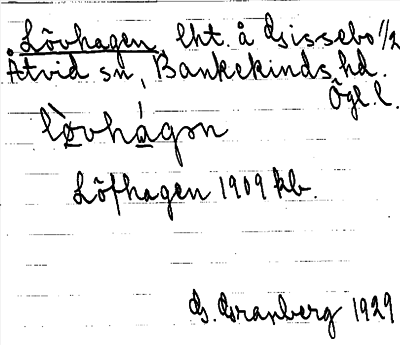 Lövhagen, lht. å Gissebo 1/2
Åtvid sn, Bankekinds hd.
Ögl. l.
lo̠̊̀vhá̠gən
Löfhagen 1909 kb.
G. Granberg 1929